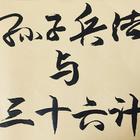 孙子兵法
与
三十六计